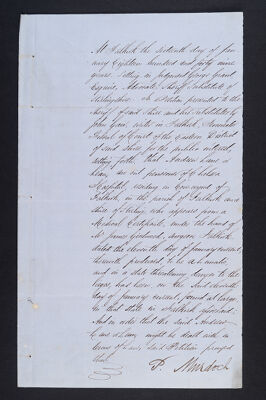 At Falkirk the sixteenth day of Jan
uary Eighteen hundred and forty nine
years. Sitting in judgment George Grant
Esquire, Advocate, Sheriff Substitute of
Stirlingshire. In a Petition presented to the
Sheriff of said Shire and his Substitutes by
John Gair, writer in Falkirk, Procurator
Fiscal of Court of the Eastern District
of said Shire for the public interest,
setting forth, that Andrew
an out pensioner of Chelsea
Hospital, residing in of
Falkirk, in the parish of Falkirk and
Shire of Stirling who appears from a
Medical Certificate, under the hand of
Mr James Girdwood, surgeon Falkirk
dated the eleventh day of January current,
herewith produced, to be a Lunatic,
and in a state threatening danger to the
lieges, has been, on the said eleventh
day of January current, found at large,
in that state in Falkirk aforesaid:
And in order that the said Andrew
might be dealt with in
terms of Law, said Petition prayed
that
P. Murdoch